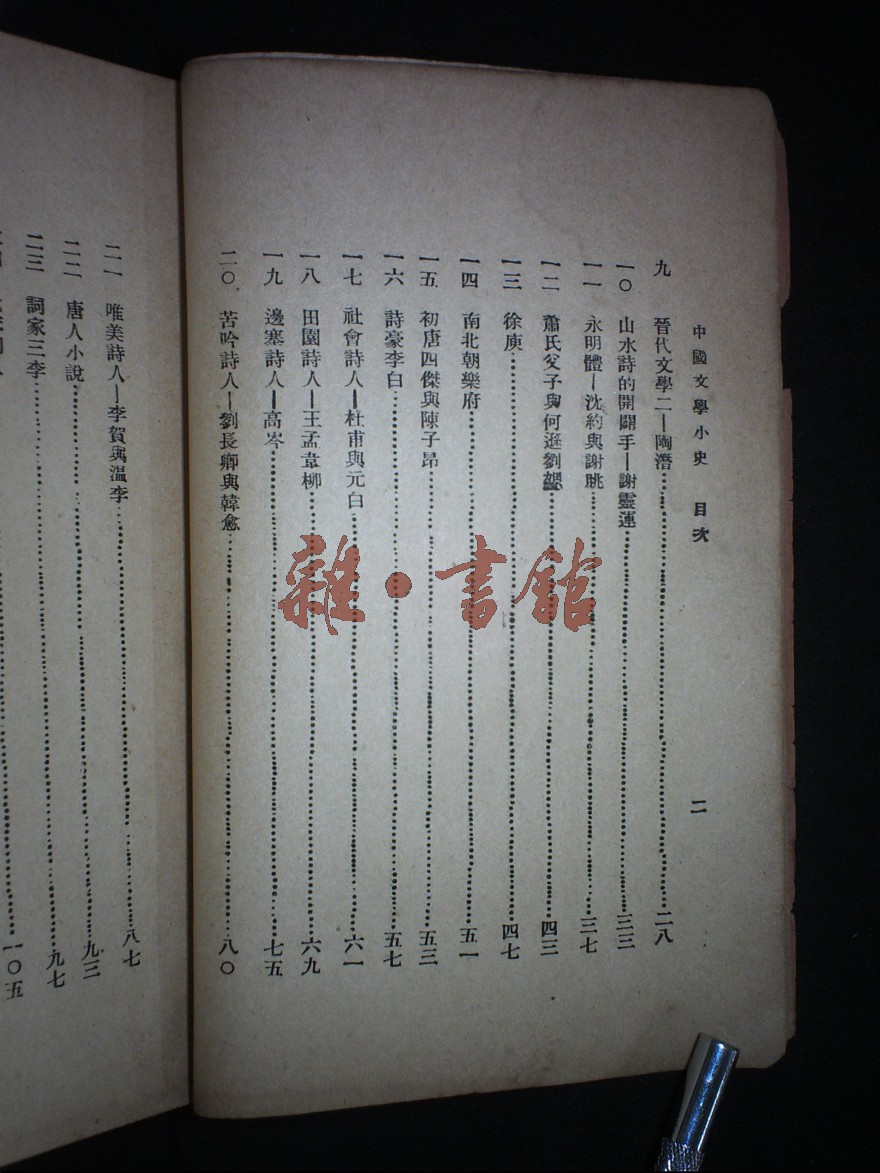 中國文學小史 目次 二
九 晉代文學二—陶潛 二八
一〇 山水詩的開闢手—謝靈運 三三
一一 永明體—沈約與謝朓 三七
一二 蕭氏父子與何遜劉勰 四三
一三 徐庾 四七
一四 南北朝樂府 五一
一五 初唐四傑與陳子昂 五三
一六 詩豪李白 五七
一七 社會詩人—杜甫與元白 六一
一八 田園詩人—王孟韋柳 六九
一九 邊塞詩人—高岑 七五
二〇 苦吟詩人—劉長卿與韓愈 八〇
二一 唯美詩人—李賀與溫李 八七
二二 唐人小說 九三
二三 詞家三李 九七
一〇五
雜·書館